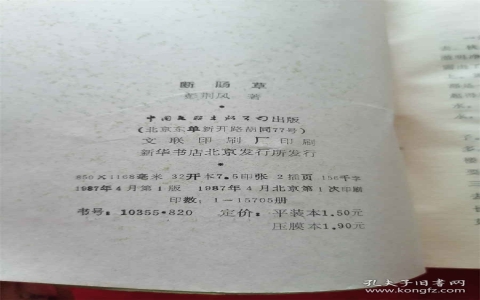 断肠草
彭荆风 著
中国文联出版公司出版
(北京东单新开路胡同77号)
文联印刷厂印刷
新华书店北京发行所发行
850×1168毫米 32开本7.5印张 2插页 156千字
1987年4月第1版 1987年4月北京第1次印刷
印数:1—15705册
书号:10355·820 定价:平装本1.50元
压膜本1.90元
孔夫子旧书网
www.kongfz.com